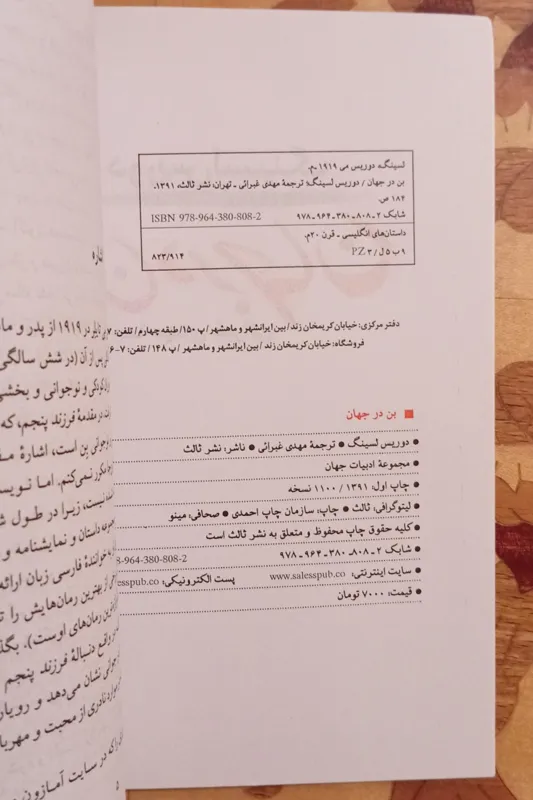 لسینگ، دوریس می ۱۹۱۹ ـ م.
بن در جهان / دوریس لسینگ؛ ترجمهٔ مهدی غبرائی ـ تهران: نشر ثالث، ۱۳۹۱.
۱۸۴ ص.
شابک ۲ ـ ۸۰۸ ـ ۳۸۰ ـ ۹۶۴ ـ ۹۷۸ ISBN 978-964-380-808-2
داستان‌های انگلیسی ـ قرن ۲۰م.
۹ ب ۵ ل / ۳ PZ ۸۲۳/۹۱۴
دفتر مرکزی: خیابان کریمخان زند / بین ایرانشهر و ماهشهر / پ ۱۵۰ / طبقه چهارم / تلفن: ۷
فروشگاه: خیابان کریمخان زند / بین ایرانشهر و ماهشهر / پ ۱۴۸ / تلفن: ۷-۶
بن در جهان
دوریس لسینگ ● ترجمهٔ مهدی غبرائی ● ناشر: نشر ثالث
مجموعهٔ ادبیات جهان
چاپ اول: ۱۳۹۱ / ۱۱۰۰ نسخه
لیتوگرافی: ثالث ● چاپ: سازمان چاپ احمدی ● صحافی: مینو
کلیه حقوق چاپ محفوظ و متعلق به نشر ثالث است
شابک ۲ ـ ۸۰۸ ـ ۳۸۰ ـ ۹۶۴ ـ ۹۷۸ 78-964-380-808-2
سایت اینترنتی: www.salesspub.co پست الکترونیکی: lesspub.co
قیمت: ۷۰۰۰ تومان
در ۱۹۱۹ از پدر و
پس از آن (در شش سالگی
کودکی و نوجوانی و بخشی
در مقدمهٔ فرزند پنجم، که
نوجوانی بن است، اشارهٔ
مکرر نمی‌کنم. اما
نیست، زیرا در طول
داستان و نمایشنامه و
خوانندهٔ فارسی زبان
از بهترین رمان‌هایش را
رمان‌های اوست).
در واقع دنبالهٔ فرزند پنجم
نشان می‌دهد و
نادری از محبت و
که در سایت آمازون
۵